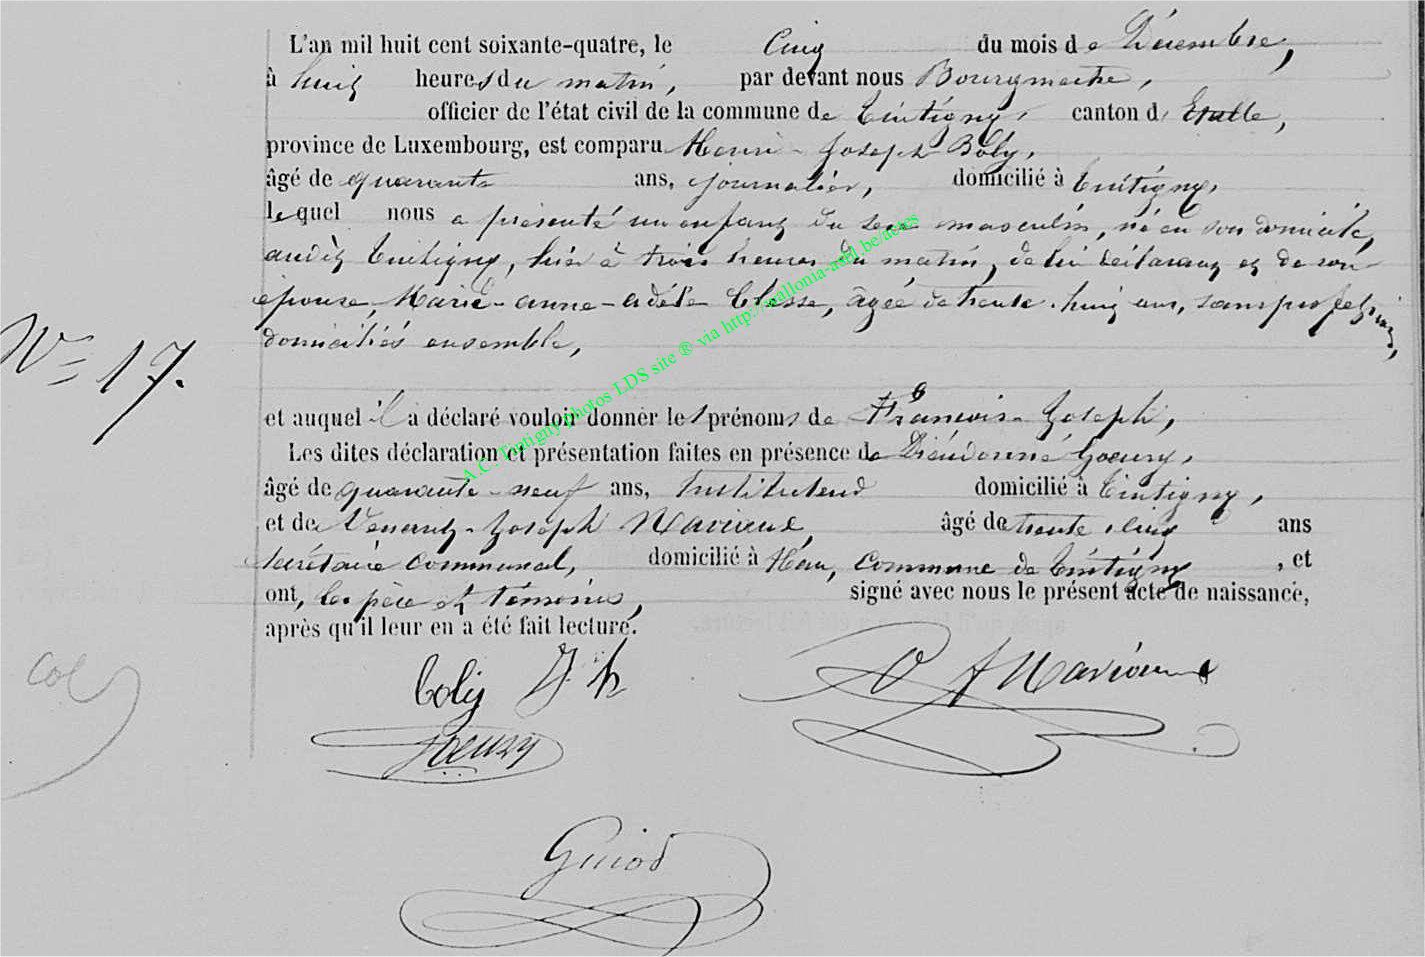 L'an mil huit cent soixante-quatre, le Cinq du mois de Décembre,
à huit heures du matin, par devant nous Bourgmestre,
officier de l'état civil de la commune de Tintigny, canton d'Etalle,
province de Luxembourg, est comparu Henri-Joseph Boly,
âgé de quarante ans, journalier, domicilié à Tintigny,
lequel nous a présenté un enfant du sexe masculin, né en son domicile,
audit Tintigny, hier à trois heures du matin, de lui déclarant et de son
épouse, Marie-anne-adèle Classe, âgée de trente-huit ans, sans profession,
domiciliés ensemble,
N° 17.
et auquel il a déclaré vouloir donner les prénoms de François-Joseph,
Les dites déclaration et présentation faites en présence de Dieudonné Goeury,
âgé de quarante-neuf ans, Instituteur domicilié à Tintigny,
et de Venant-Joseph Mavieux, âgé de trente-cinq ans
secrétaire communal, domicilié à Han, commune de Tintigny, et
ont, les père et témoins, signé avec nous le présent acte de naissance,
après qu'il leur en a été fait lecture.
boly J h
Goeury
Guiod
A.C. Tintigny photos LDS site ® via http://wallonia-asbl.be/actes